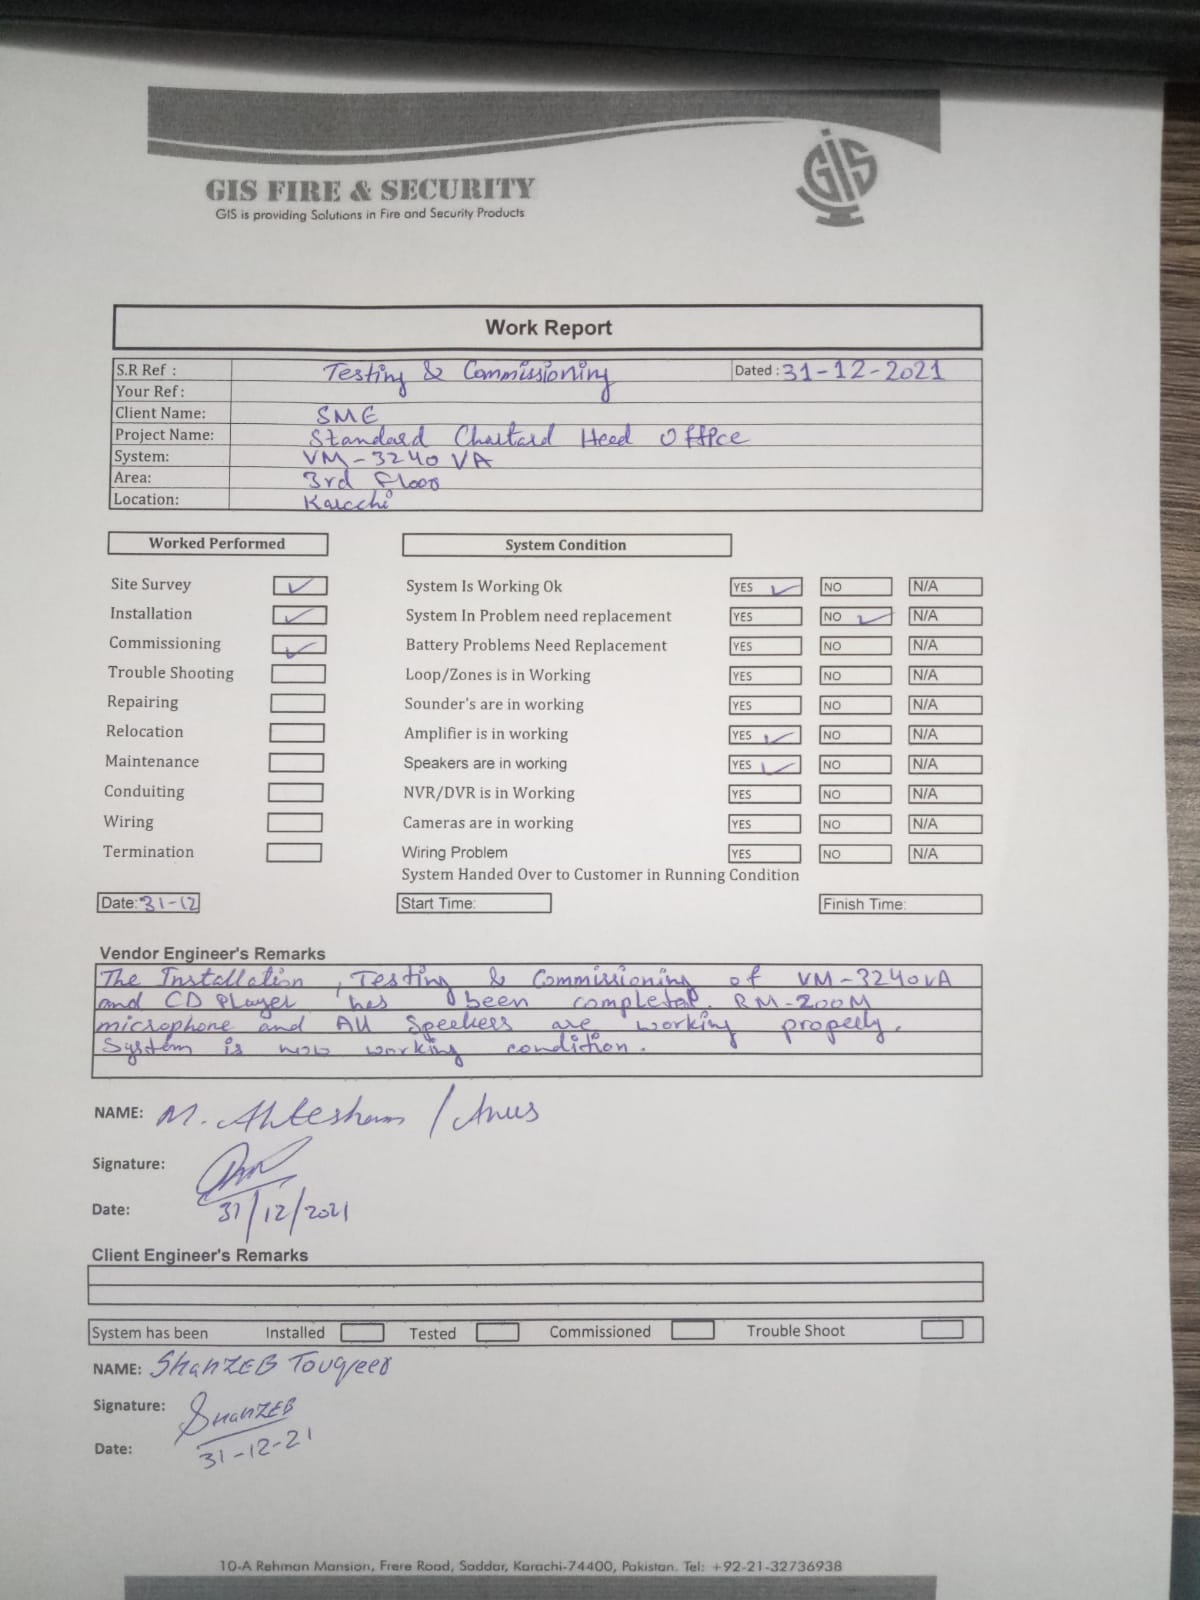 GIS
GIS FIRE & SECURITY
GIS is providing Solutions in Fire and Security Products
Work Report
S.R Ref : Testing & Commissioning Dated : 31-12-2021
Your Ref :
Client Name: SME
Project Name: Standard Chartard Head Office
System: VM-3240 VA
Area: 3rd Floor
Location: Karachi
Worked Performed System Condition
Site Survey ✓ System Is Working Ok YES ✓ NO N/A
Installation ✓ System In Problem need replacement YES NO ✓ N/A
Commissioning ✓ Battery Problems Need Replacement YES NO N/A
Trouble Shooting Loop/Zones is in Working YES NO N/A
Repairing Sounder's are in working YES NO N/A
Relocation Amplifier is in working YES ✓ NO N/A
Maintenance Speakers are in working YES ✓ NO N/A
Conduiting NVR/DVR is in Working YES NO N/A
Wiring Cameras are in working YES NO N/A
Termination Wiring Problem YES NO N/A
System Handed Over to Customer in Running Condition
Date: 31-12 Start Time: Finish Time:
Vendor Engineer's Remarks
The Installation, Testing & Commissioning of VM-3240VA
and CD Player has been completed. RM-200M
microphone and All Speakers are working properly.
System is now working condition.
NAME: M. Ahtesham / Anus
Signature:
Date: 31/12/2021
Client Engineer's Remarks
System has been Installed Tested Commissioned Trouble Shoot
NAME: ShanZEB Touqeer
Signature: ShanZEB
Date: 31-12-21
10-A Rehman Mansion, Frere Road, Saddar, Karachi-74400, Pakistan. Tel: +92-21-32736938